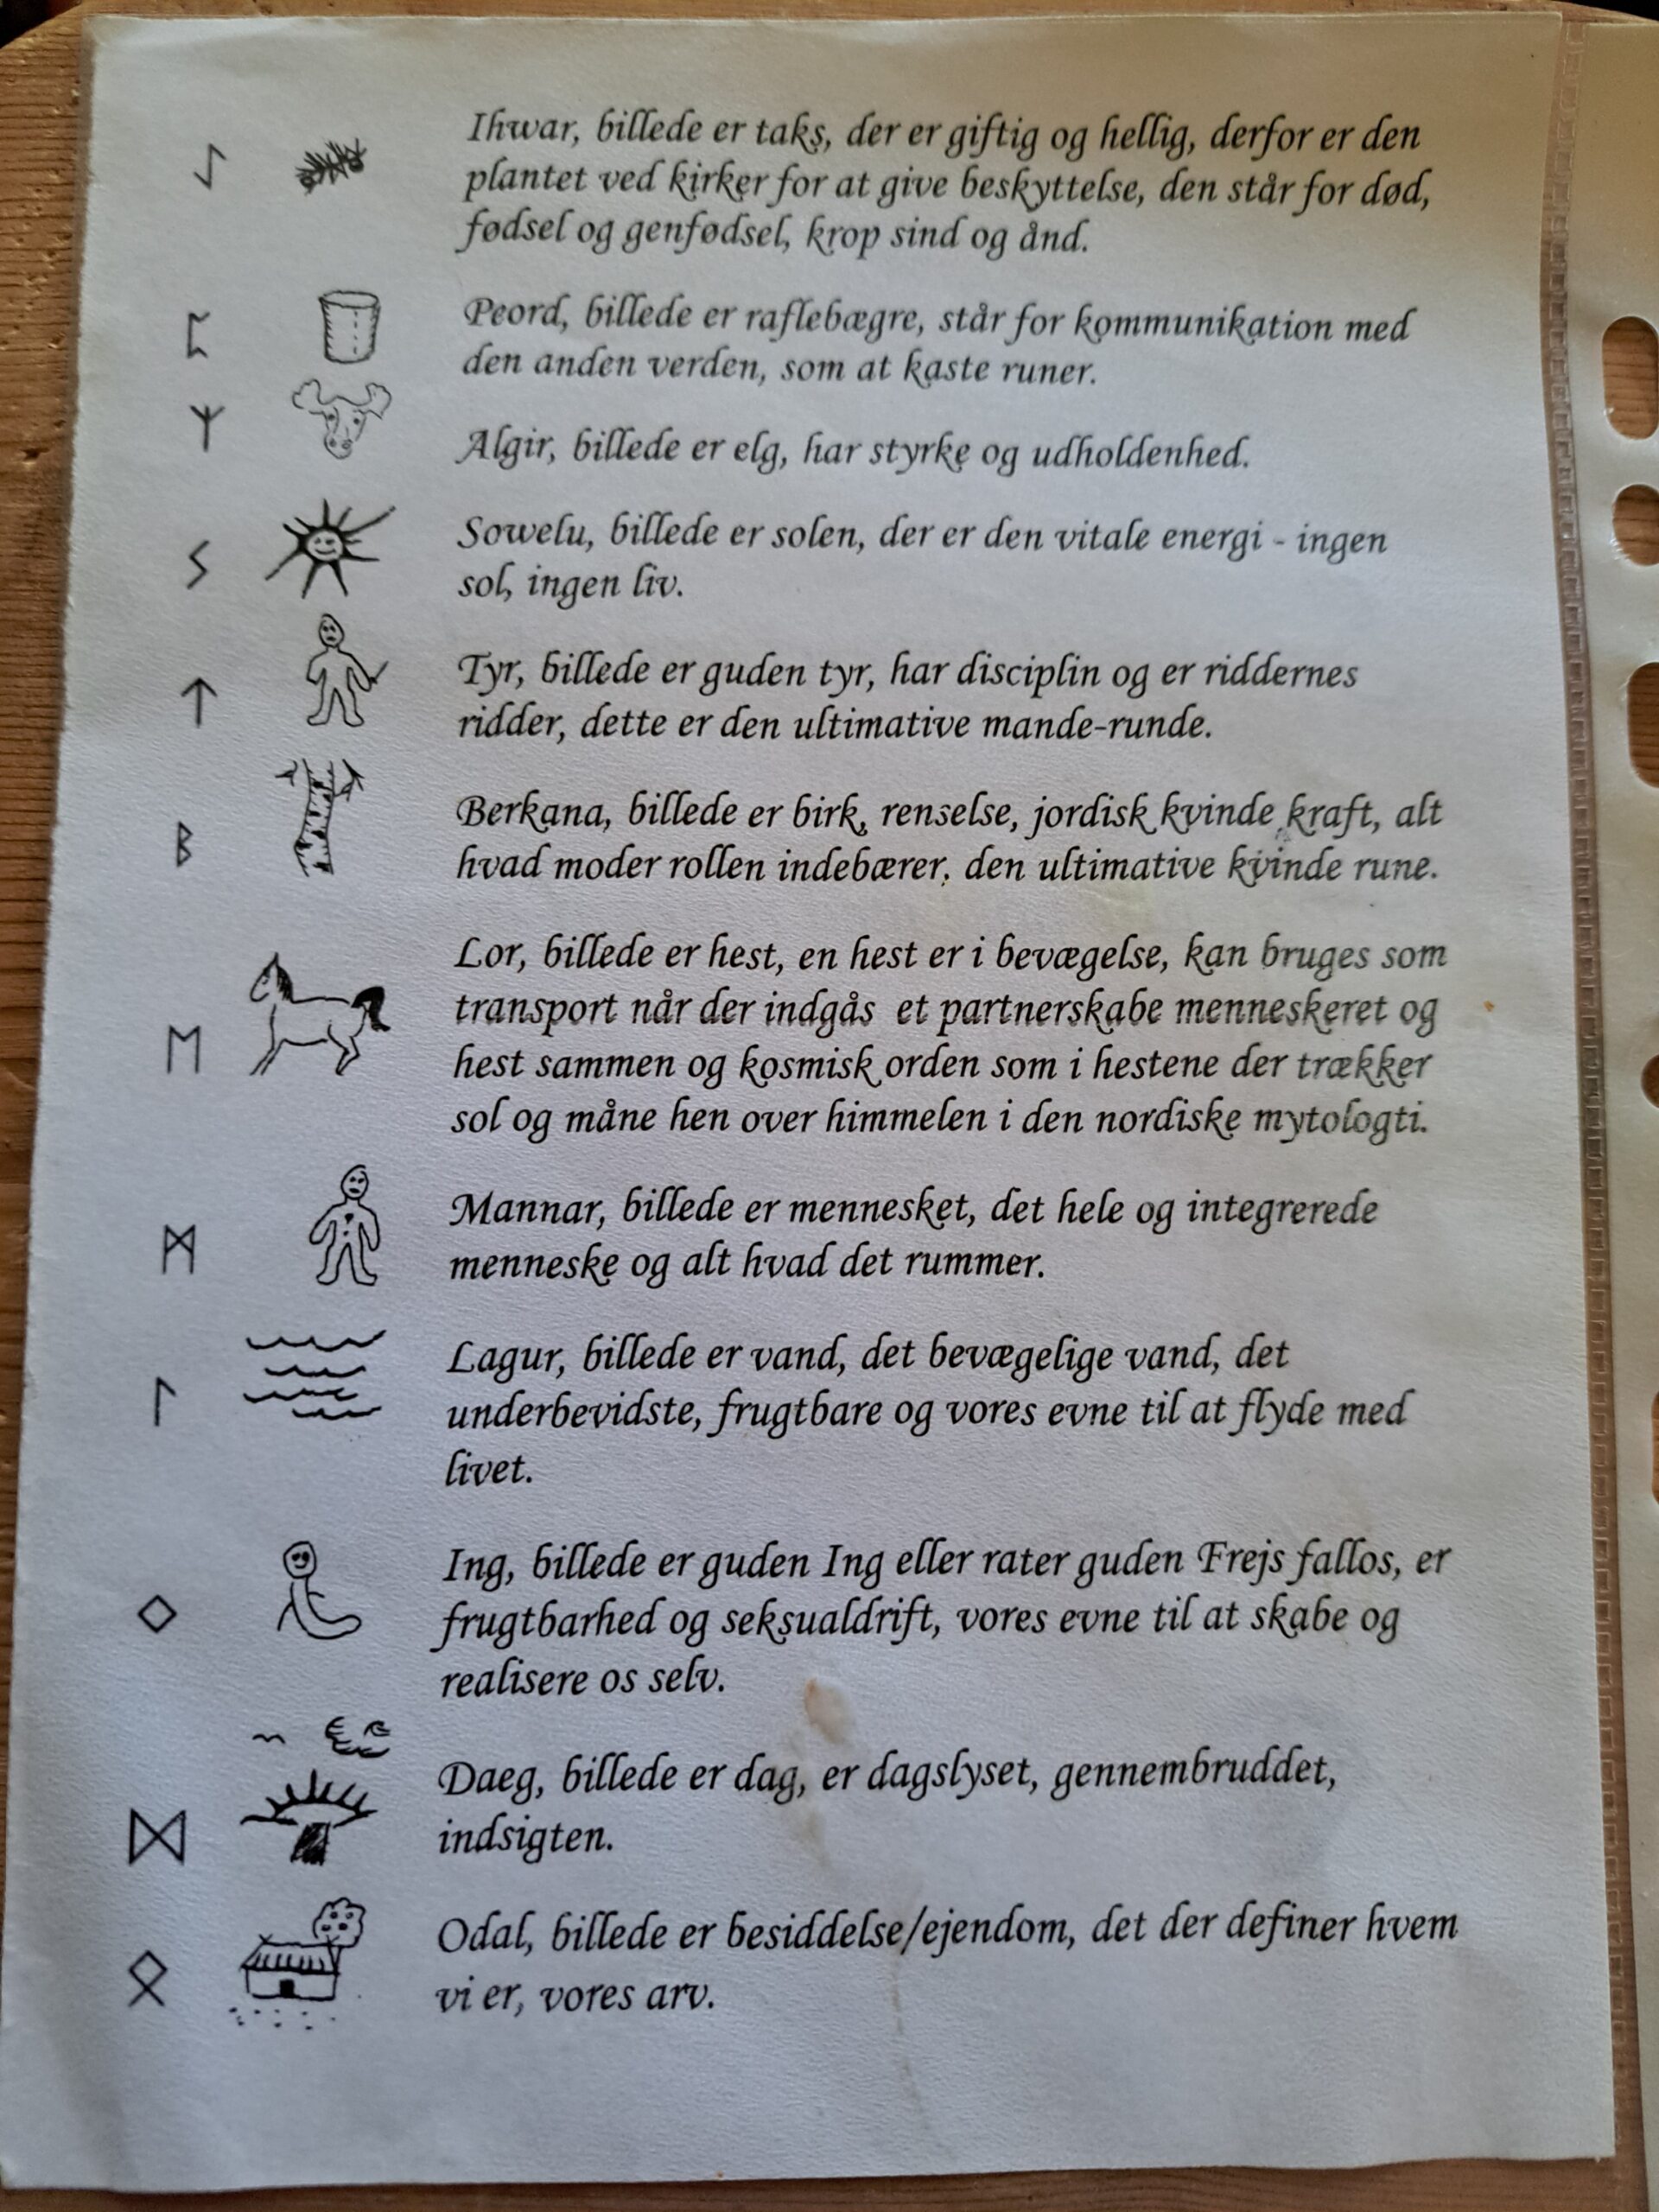 ᛇ Ihwar, billede er taks, der er giftig og hellig, derfor er den
plantet ved kirker for at give beskyttelse, den står for død,
fødsel og genfødsel, krop sind og ånd.
ᛈ Peord, billede er raflebægre, står for kommunikation med
den anden verden, som at kaste runer.
ᛉ Algir, billede er elg, har styrke og udholdenhed.
ᛊ Sowelu, billede er solen, der er den vitale energi - ingen
sol, ingen liv.
ᛏ Tyr, billede er guden tyr, har disciplin og er riddernes
ridder, dette er den ultimative mande-runde.
ᛒ Berkana, billede er birk, renselse, jordisk kvinde kraft, alt
hvad moder rollen indebærer, den ultimative kvinde rune.
ᛖ Lor, billede er hest, en hest er i bevægelse, kan bruges som
transport når der indgås et partnerskabe menneskeret og
hest sammen og kosmisk orden som i hestene der trækker
sol og måne hen over himmelen i den nordiske mytologti.
ᛗ Mannar, billede er mennesket, det hele og integrerede
menneske og alt hvad det rummer.
ᛚ Lagur, billede er vand, det bevægelige vand, det
underbevidste, frugtbare og vores evne til at flyde med
livet.
ᛜ Ing, billede er guden Ing eller rater guden Frejs fallos, er
frugtbarhed og seksualdrift, vores evne til at skabe og
realisere os selv.
ᛞ Daeg, billede er dag, er dagslyset, gennembruddet,
indsigten.
ᛟ Odal, billede er besiddelse/ejendom, det der definer hvem
vi er, vores arv.